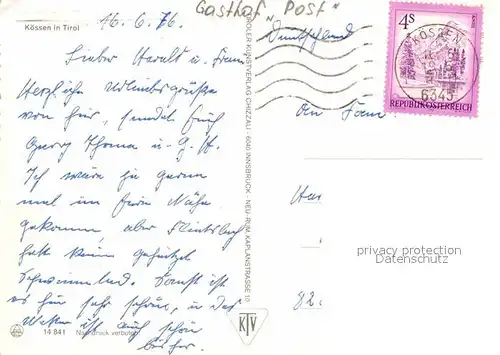 Kössen in Tirol
16.6.76.
Gasthof „Post"
Deutschland
Lieber Harald u. Frau
Herzliche Urlaubsgrüße
von hier, sendet Euch
Georg Thoma u.
Ich wäre ja gerne
mal in Eure Nähe
gekommen, aber Flintsbach
hatt kein geheiztes
Schwimmbad. Sonst ist
es hier sehr schön, u. das
Wetter ist auch schön
bisher.
14 841 Nachdruck verboten
TIROLER KUNSTVERLAG CHIZZALI · 6040 INNSBRUCK - NEU-RUM, KAPLANSTRASSE 19
KTV
4S
REPUBLIK ÖSTERREICH
KÖSSEN
6345
An Fam
Har
privacy protection
Datenschutz
82